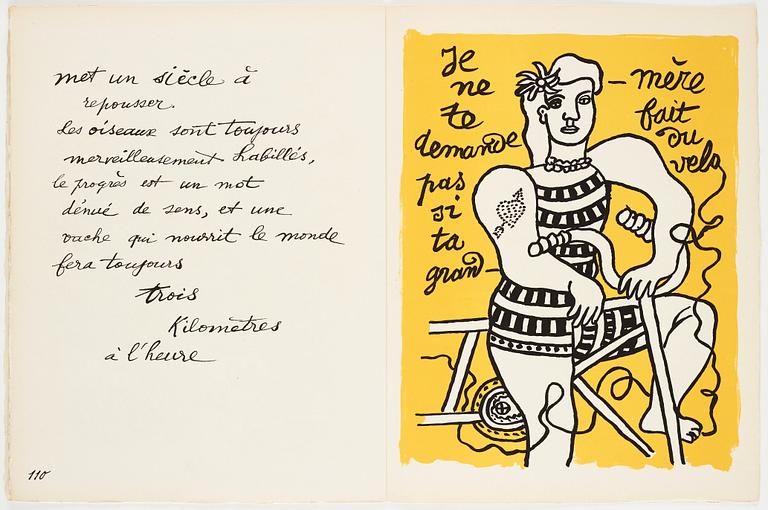 met un siècle à
repousser.
Les oiseaux sont toujours
merveilleusement habillés,
le progrès est un mot
dénué de sens, et une
vache qui nourrit le monde
fera toujours
trois
Kilomètres
à l'heure
110
Je
ne
te
demande
pas
si
ta
grand-
-mère
fait
du
vélo